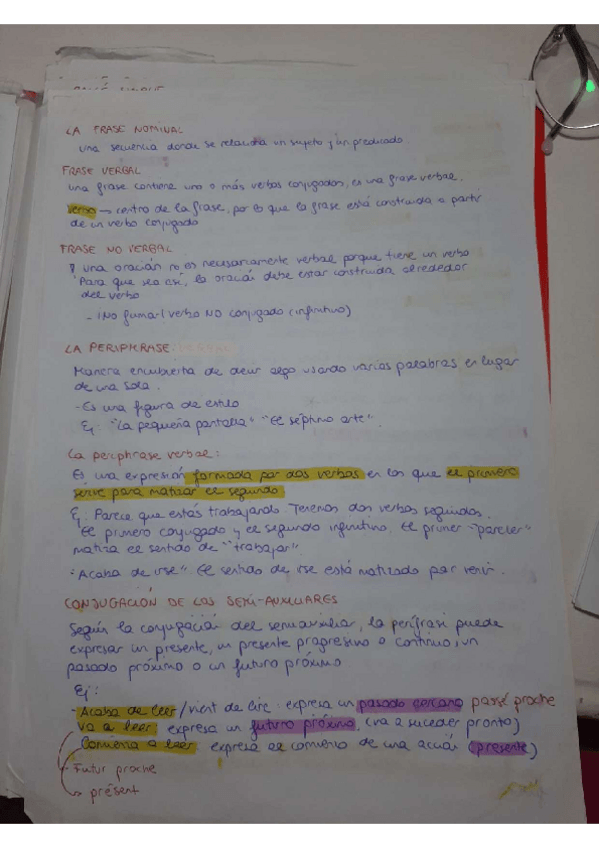 LA FRASE NOMINAL
una secuencia donde se relaciona un sujeto y un predicado.
FRASE VERBAL
una frase contiene uno o más verbos conjugados, es una frase verbal.
verbo → centro de la frase, por lo que la frase está construida a partir
de un verbo conjugado
FRASE NO VERBAL
una oración no es necesariamente verbal porque tiene un verbo
Para que sea así, la oración debe estar construida alrededor
del verbo
- ¡No fumar! verbo NO conjugado (infinitivo)
LA PERIPHRASE
Manera encubierta de decir algo usando varias palabras en lugar
de una sola.
- Es una figura de estilo
Ej: "La pequeña pantalla" "El séptimo arte".
La periphrase verbal:
Es una expresión formada por dos verbos en los que el primero
sirve para matizar el segundo
Ej: Parece que estás trabajando Tenemos dos verbos seguidos.
El primero conjugado y el segundo infinitivo. El primer "parecer"
matiza el sentido de "trabajar"
"Acaba de irse". El sentido de irse está matizado por venir.
CONJUGACIÓN DE LOS SEMI-AUXILIARES
Según la conjugación del semiauxiliar, la perífrasi puede
expresar un presente, un presente progresivo o continuo, un
pasado próximo o un futuro próximo
Ej:
- Acaba de leer / vient de lire: expresa un pasado cercano passé proche
Va a leer expresa un futuro próximo. (va a suceder pronto)
Comienza a leer expresa el comienzo de una acción (presente)
Futur proche
présent